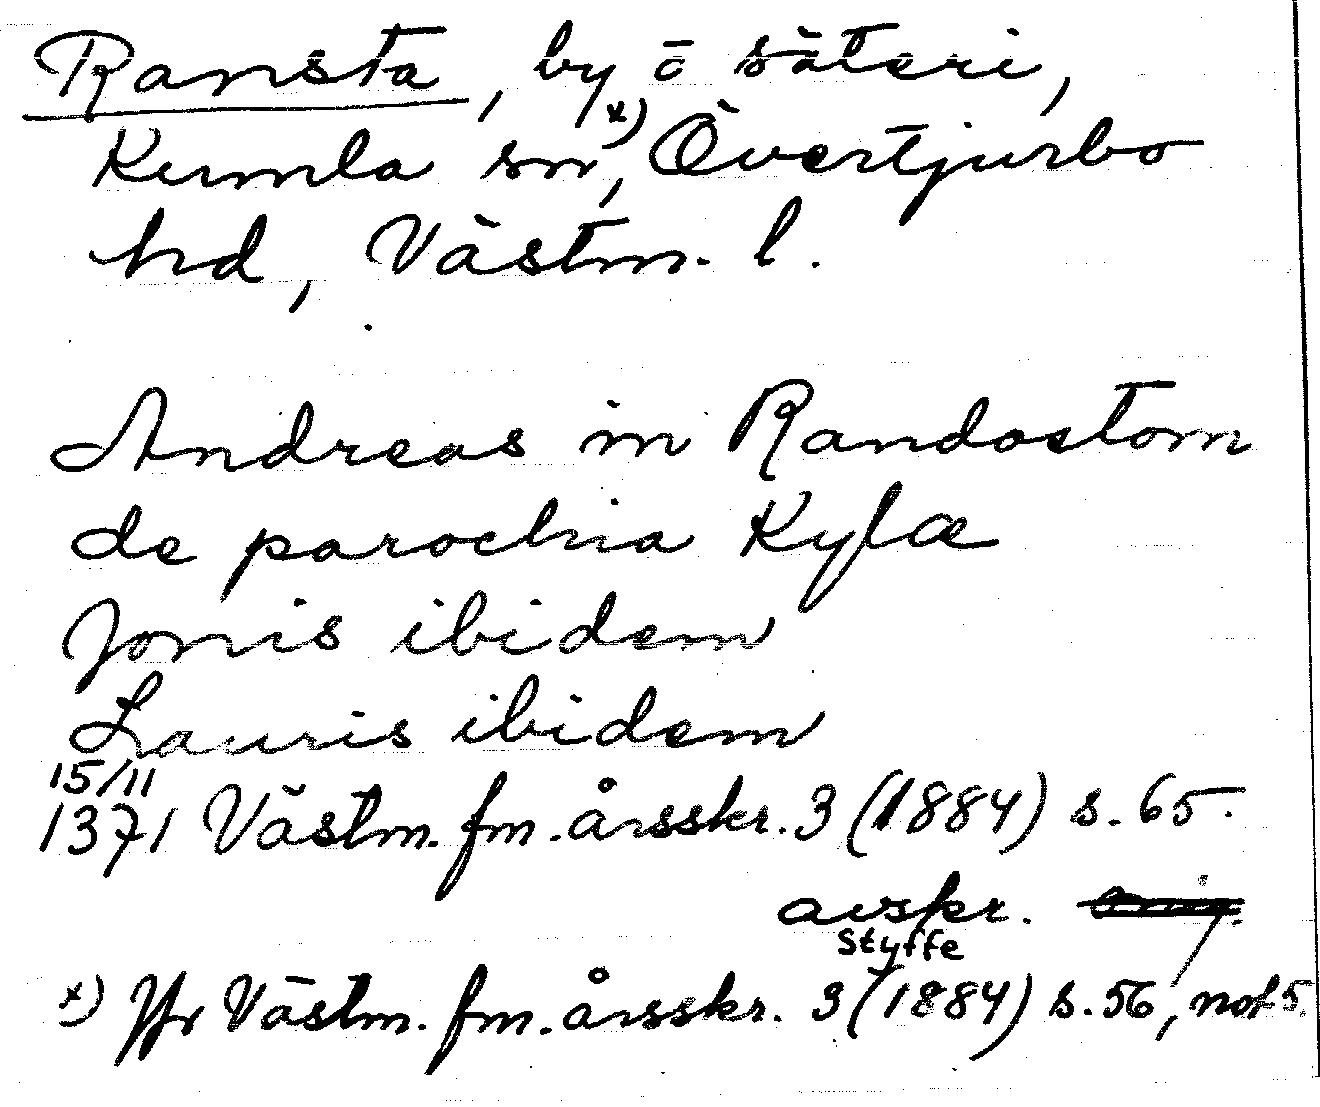 Ransta, by o säteri,
Kumla sn,*) Övertjurbo
hd, Västm. l.
Andreas in Randastom
de parochia Kylæ
Jonis ibidem
Lauris ibidem
15/11
1371 Västm. fm. årsskr. 3 (1884) s. 65.
avskr.
Styffe
*) Jfr Västm. fm. årsskr. 3 (1884) s. 56, not 5.